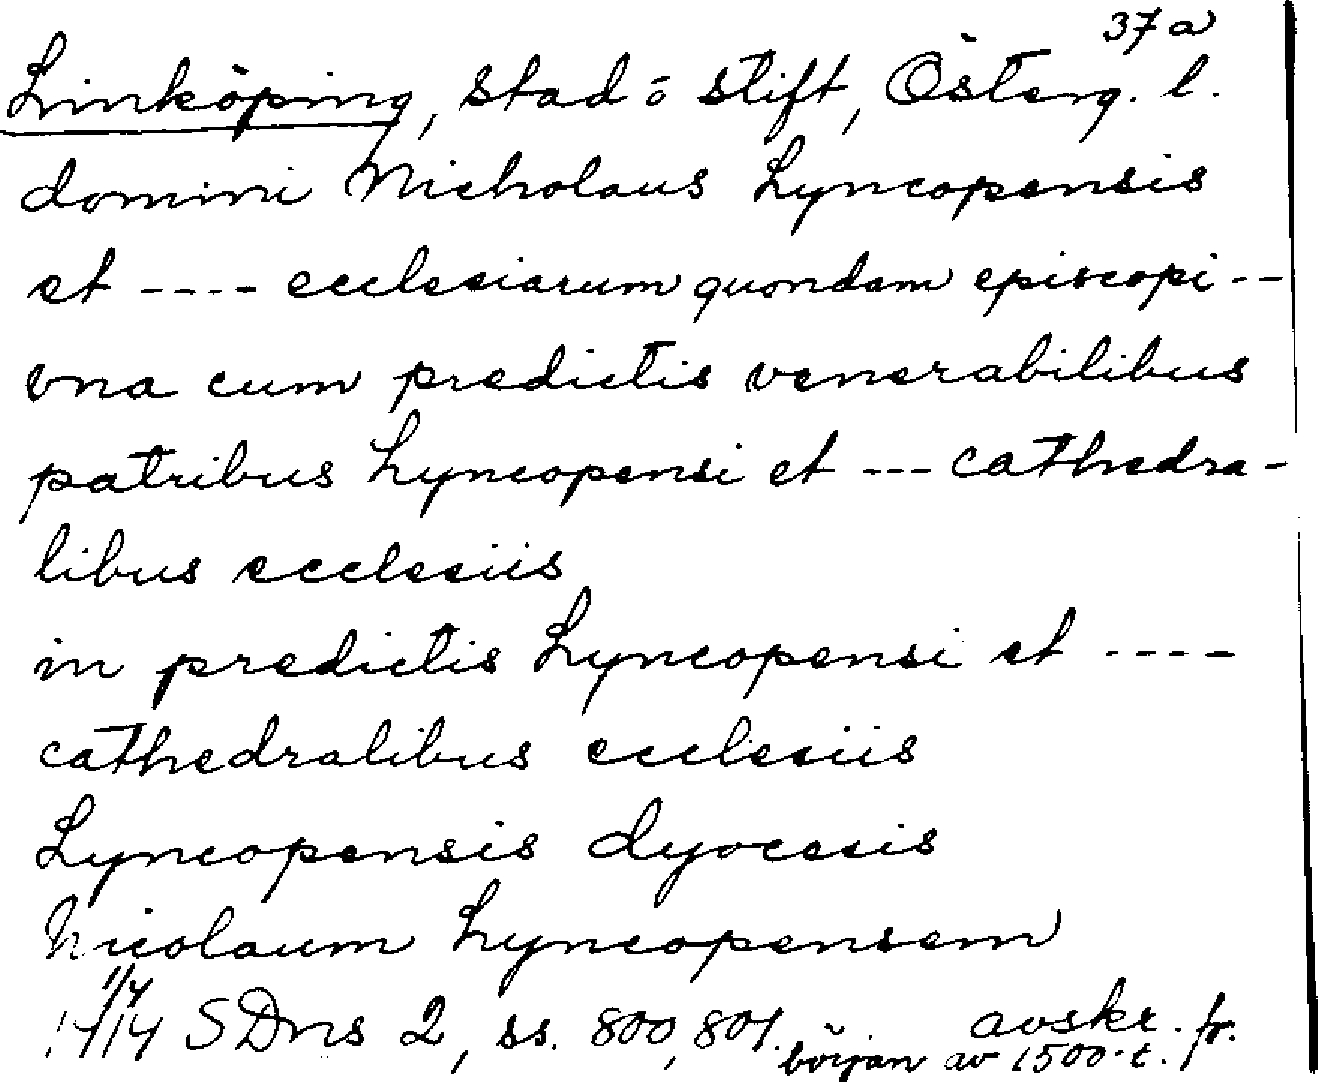 37 a
Linköping, stad o stift, Österg. l.
domini Nicholaus Lyncopensis
et ---- ecclesiarum quondam episcopi --
vna cum predictis venerabilibus
patribus Lyncopensi et --- cathedra-
libus ecclesiis
in predictis Lyncopensi et ----
cathedralibus ecclesiis
Lyncopensis dyocesis
Nicolaum Lyncopensem
1/4
1414 SDns 2, ss. 800, 801. avskr. fr.
början av 1500-t.